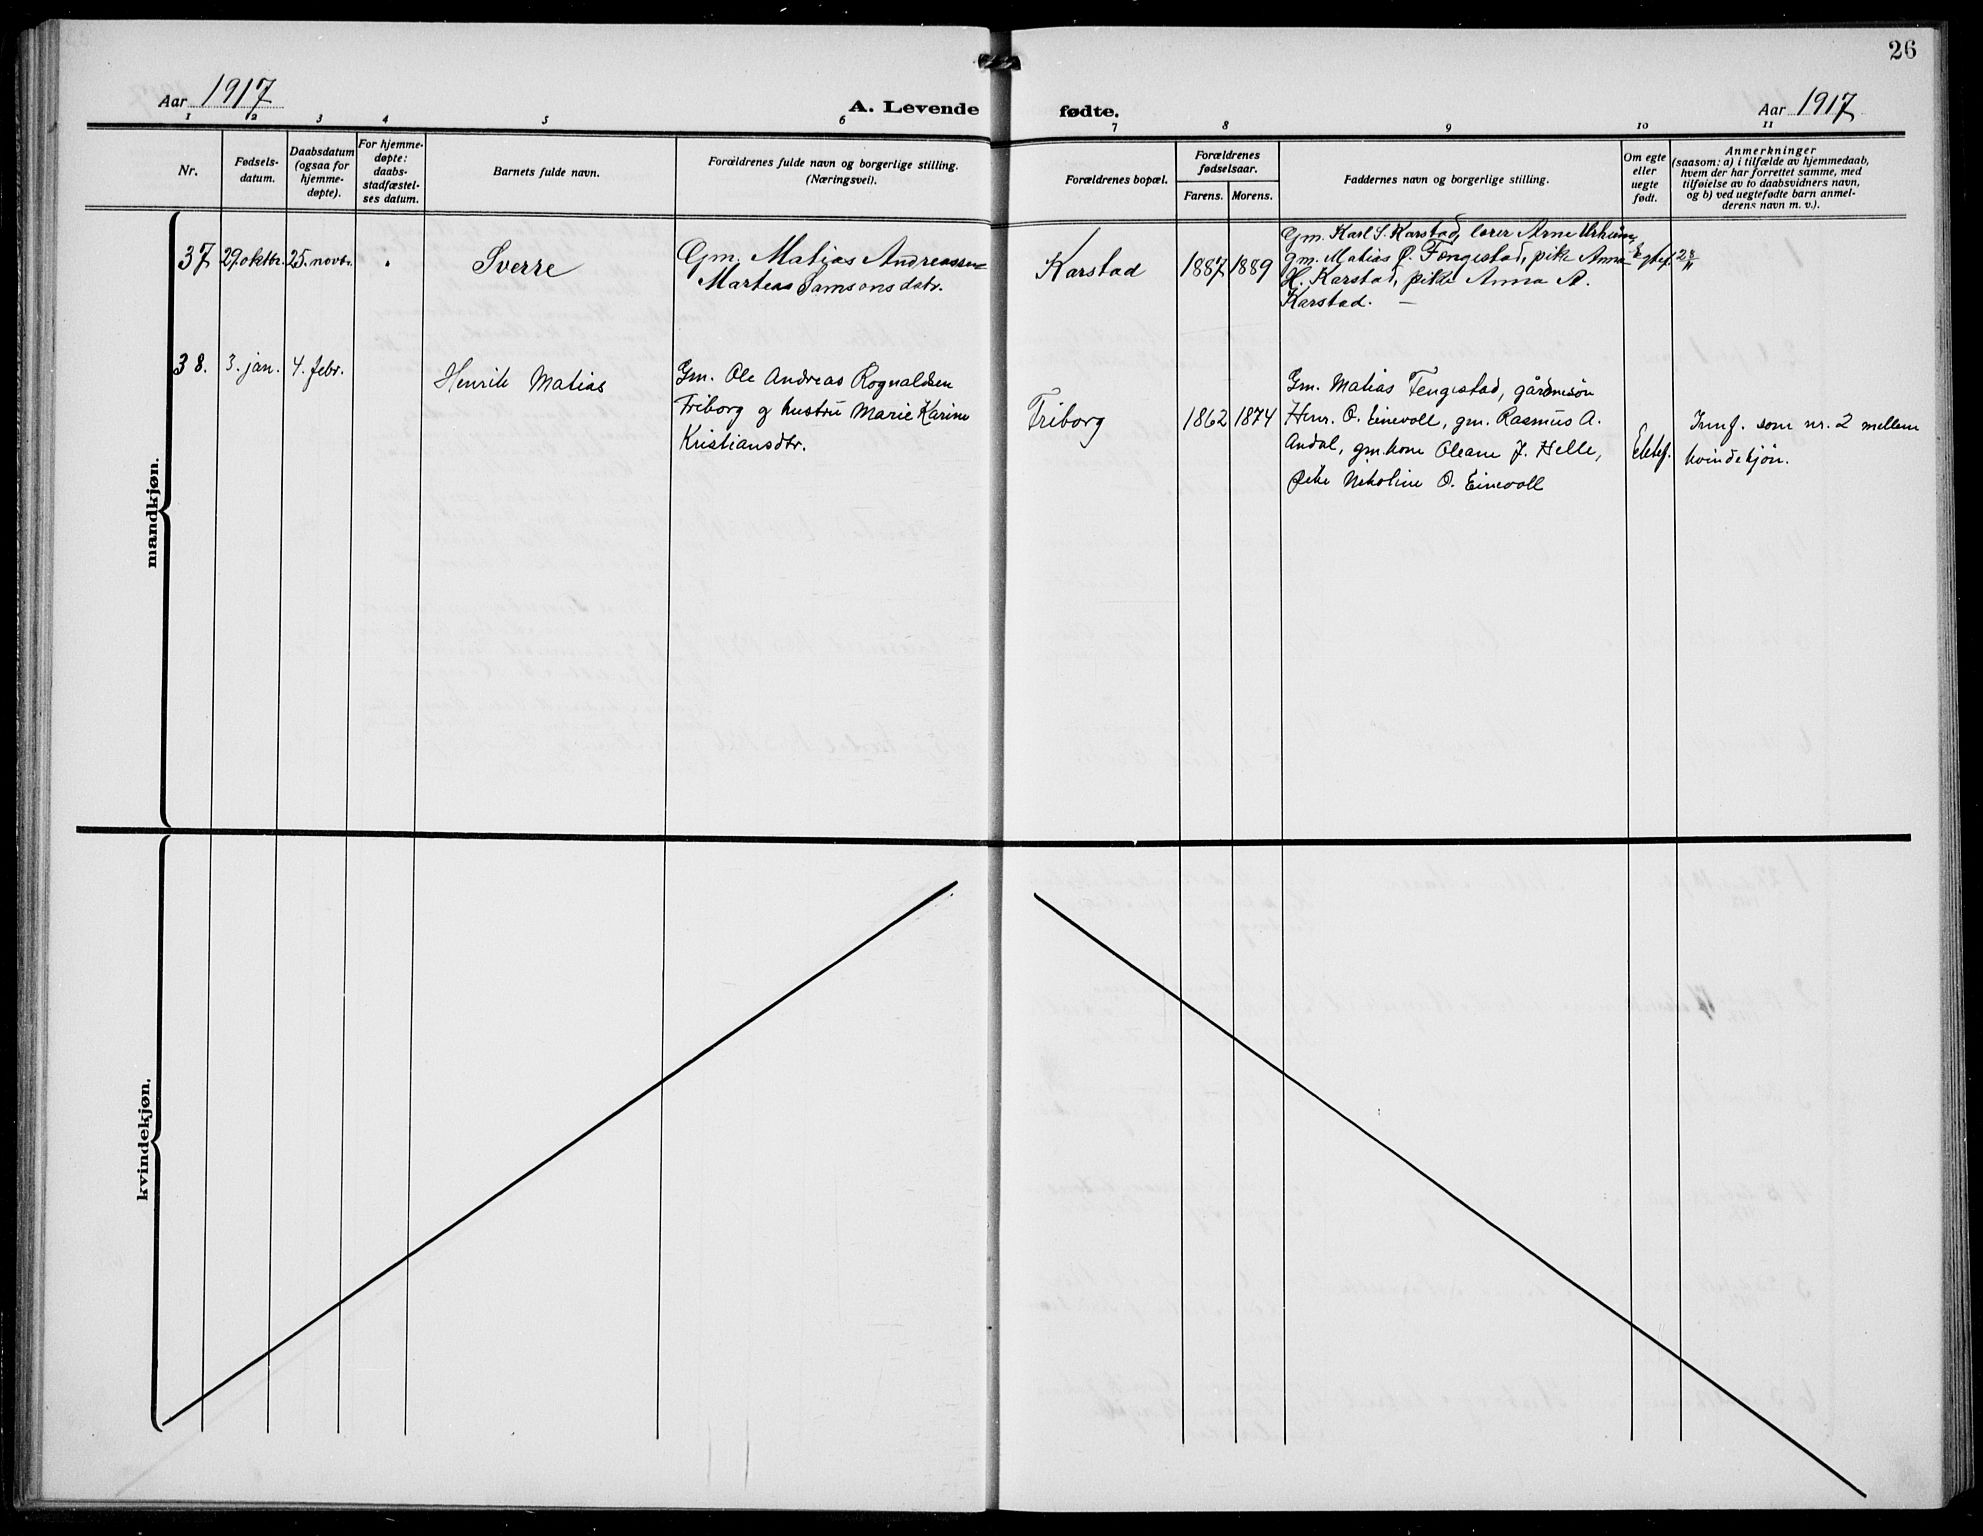 26
Aar 1917
A. Levende
fødte.
Aar 1917
1 2 3 4 5 6 7 8 9 10 11
Nr.
Fødsels-
datum.
Daabsdatum
(ogsaa for
hjemme-
døpte).
For hjemme-
døpte:
daabs-
stadfæstel-
ses datum.
Barnets fulde navn.
Forældrenes fulde navn og borgerlige stilling.
(Næringsvei).
Forældrenes bopæl.
Forældrenes
fødselsaar.
Farens. Morens.
Faddernes navn og borgerlige stilling.
Om egte
eller
uegte
født.
Anmerkninger
(saasom: a) i tilfælde av hjemmedaab,
hvem der har forrettet samme, med
tilføielse av to daabsvidners navn,
og b) ved uegtefødte barn anmel-
derens navn m. v.).
mandkjøn.
37
29. oktbr.
25. novbr.
Sverre
Gm. Matias Andreassen
Martea Samsonsdatr.
Karstad
1887 1889
Gm. Karl S. Karstad, lærer Arne
gm. Matias O. Fengestad, pike Anna
H. Karstad, pike Anna A.
Karstad. —
Egtef.
28/11
38.
3. jan.
4. febr.
Henrik Matias
Gm. Ole Andreas Rognaldsen
Friborg og hustru Marie Karine
Kristiansdtr.
Friborg
1862 1874
Gm. Matias Fengestad, gårdmsøn
Henr. O. Einevoll, gm. Rasmus A.
Andal, gm.kone Oleane J. Helle,
pike Nikoline O. Einevoll
Ektef.
Innf. som nr. 2 mellem
kvindekjøn.
kvindekjøn.